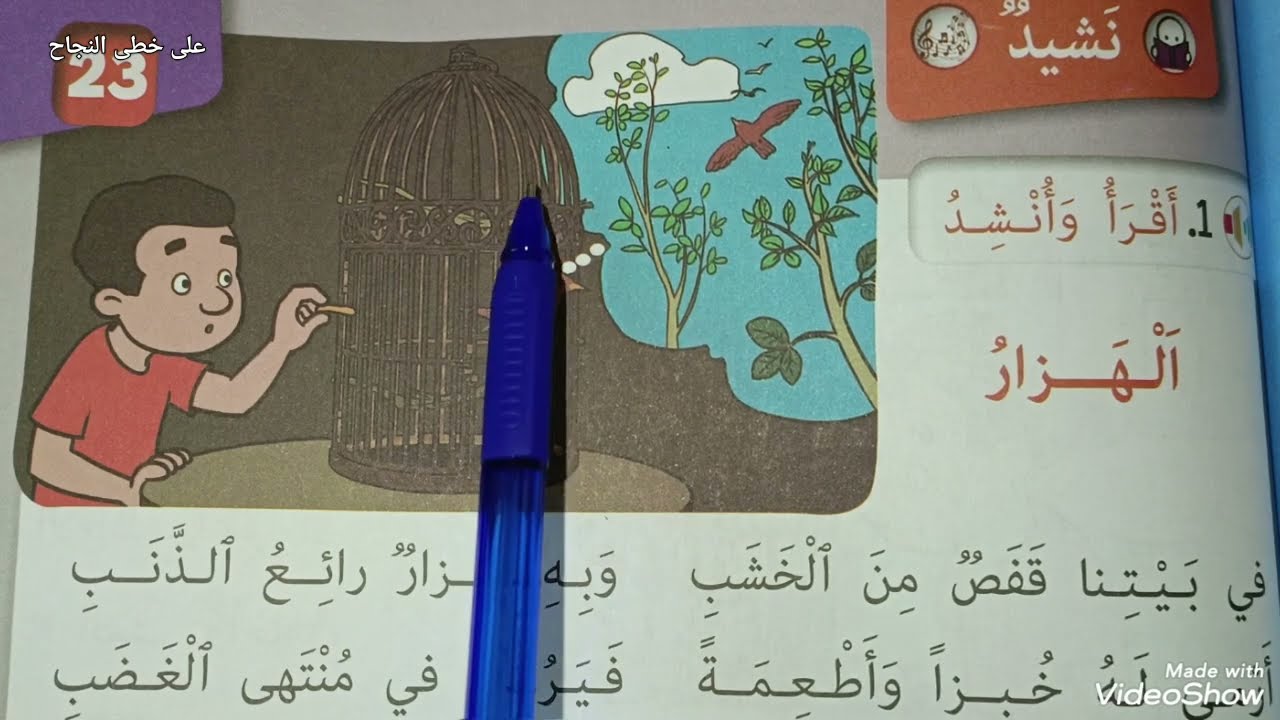 على خطى النجاح
23
نَشيدٌ
1. أَقْرَأُ وَأُنْشِدُ
اَلْهَزارُ
في بَيْتِنا قَفَصٌ مِنَ ٱلْخَشَبِ وَبِهِ رائِعُ ٱلذَّنَبِ
لَهُ خُبْزاً وَأَطْعِمَةً في مُنْتَهى ٱلْغَضَبِ
Made with
VideoShow